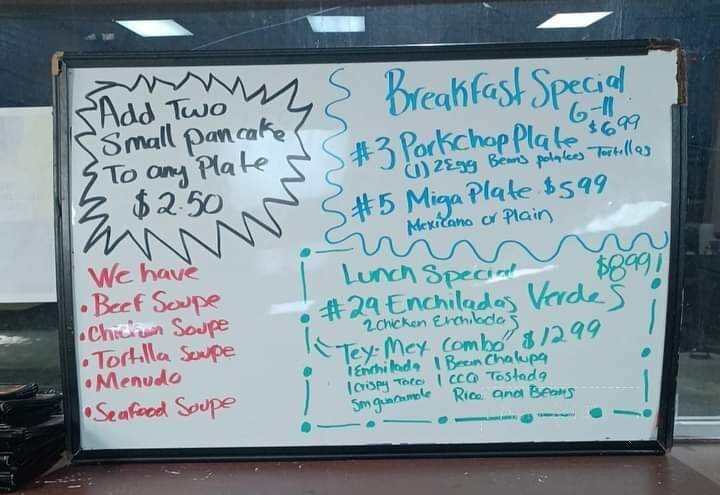 Add Two
Small pancake
To any Plate
$2.50
We have
• Beef Soupe
• Chicken Soupe
• Tortilla Soupe
• Menudo
• Seafood Soupe
Breakfast Special
6-11
#3 Porkchop Plate $6.99
(1) 2 Egg Beans potatoes Tortillas
#5 Miga Plate $5.99
Mexicana or Plain
Lunch Special $8.99
#29 Enchiladas Verdes
2 chicken Enchiladas
"Tex-Mex Combo" $12.99
1 Enchilada 1 Bean Chalupa
1 crispy Taco 1 CCQ Tostada
sm guacamole Rice and Beans